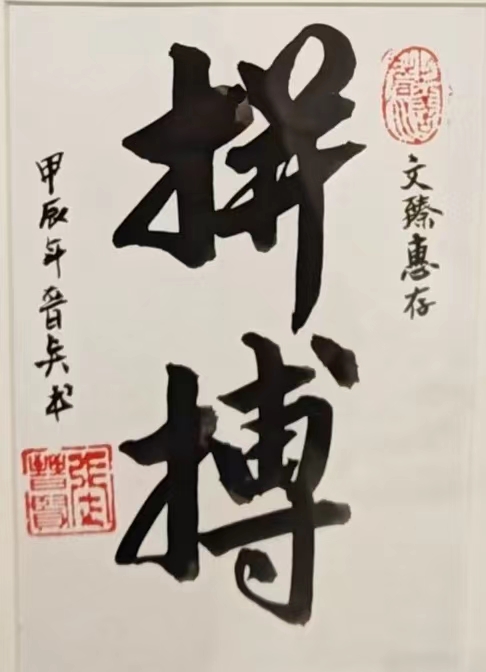 文臻惠存
拼搏
甲辰年晋兵书